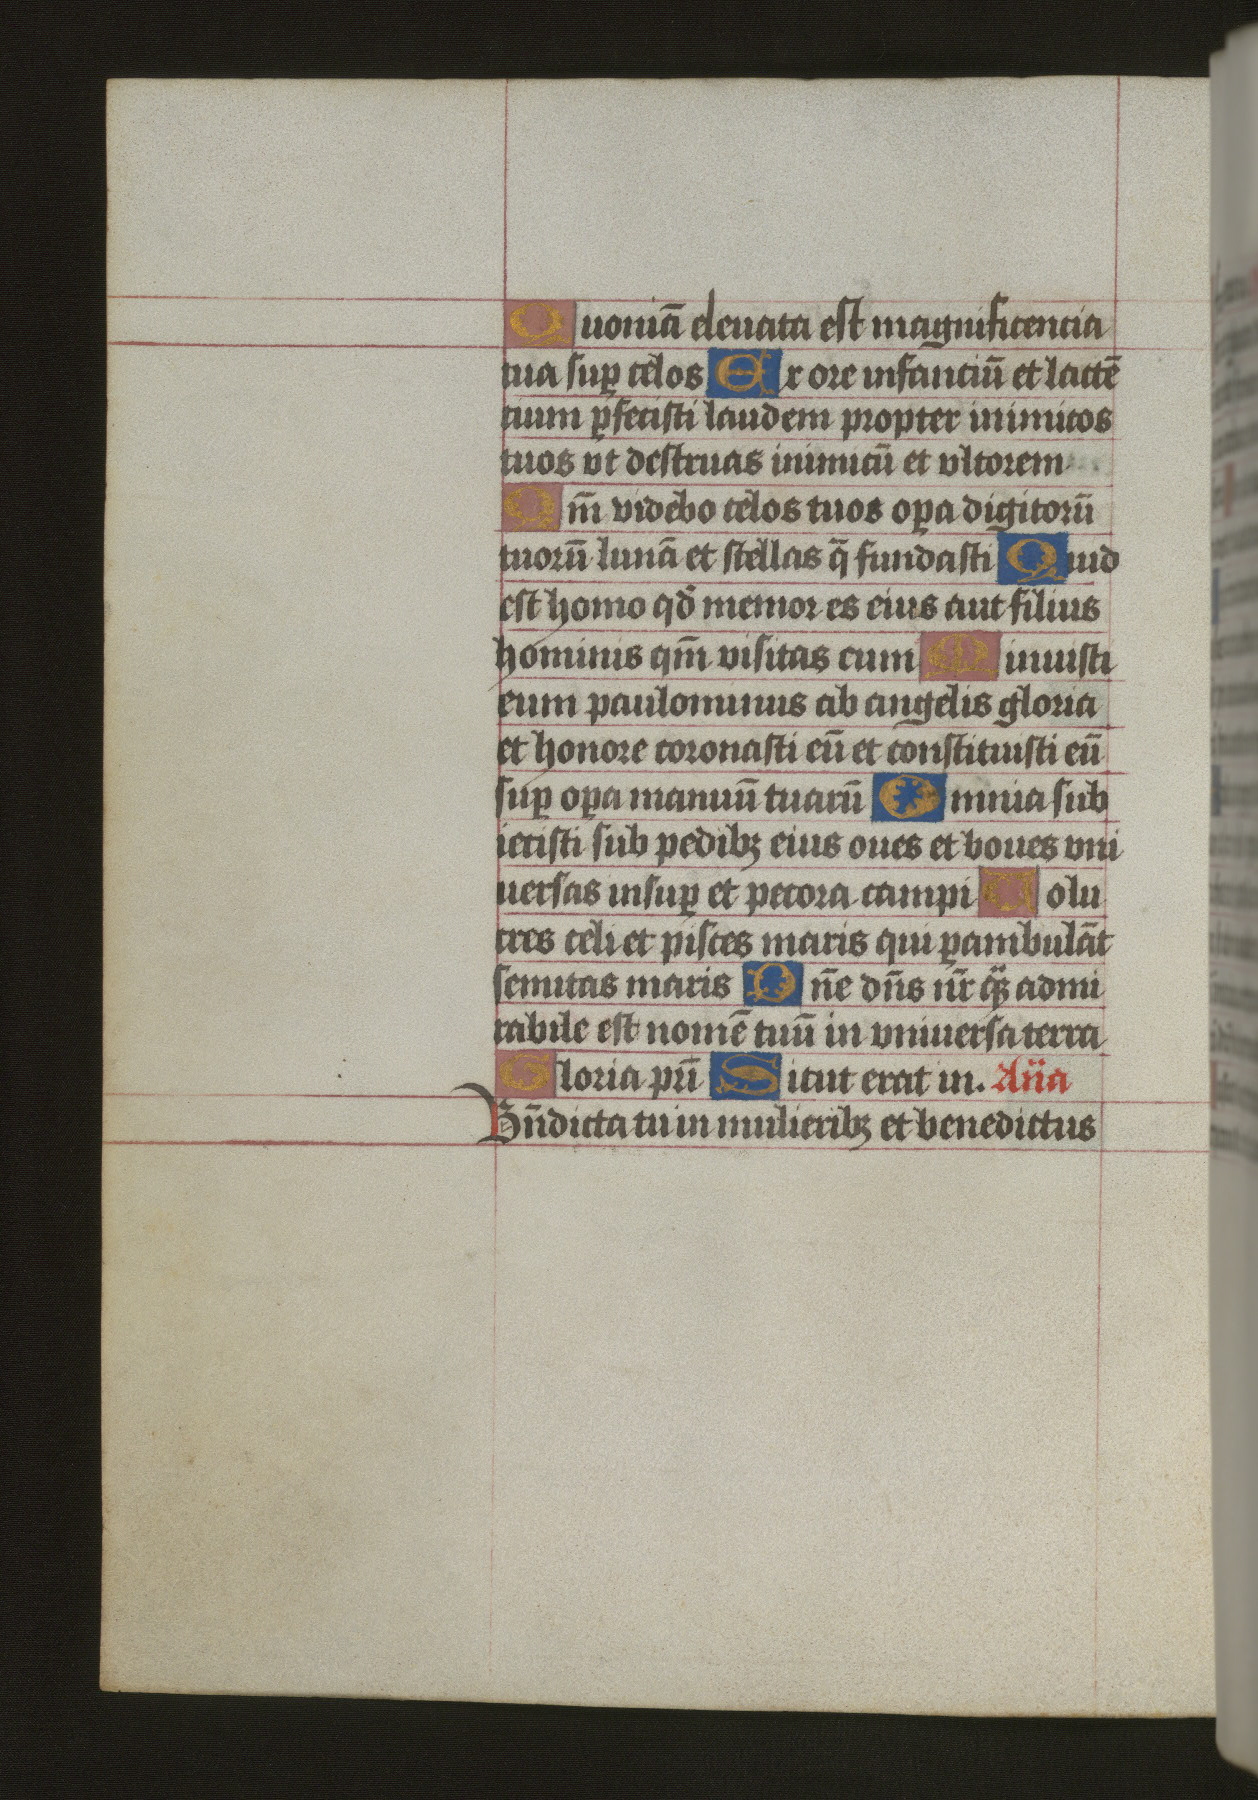 Quoniā eleuata est magnificencia
tua suꝑ celos Ex ore infanciū et lactē
tium ꝑfecisti laudem propter inimicos
tuos vt destruas inimicū et vltorem
Qm̄ videbo celos tuos oꝑa digitorū
tuorū lunā et stellas q̄ fundasti Quid
est homo qd̄ memor es eius aut filius
hominis qm̄ visitas eum Minuisti
eum paulominus ab angelis gloria
et honore coronasti eū et constituisti eū
suꝑ oꝑa manuū tuarū Omnia sub
iecisti sub pedibꝫ eius oues et boues vni
uersas insuꝑ et pecora campi Uolu
cres celi et pisces maris qui ꝑambulāt
semitas maris Dn̄e dn̄s nr̄ qꝫ̄ admi
rabile est nomē tuū in vniuersa terra
Gloria pr̄i Sicut erat in. An̄a
Bn̄dicta tu in mulieribꝫ et benedictus